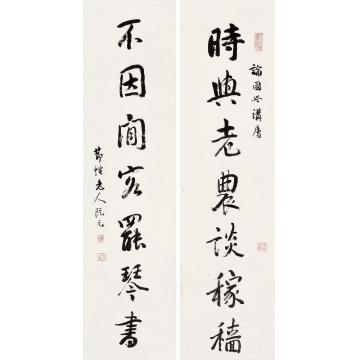 時與老農談稼穡
不因閒客罷琴書
節性老人阮元